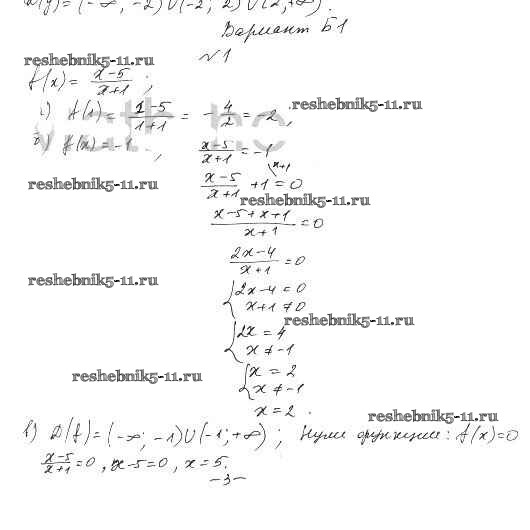 D(y) = (-∞; -2) ∪ (-2; 2) ∪ (2; +∞).
Вариант Б1
№1
reshebnik5-11.ru
f(x) = x-5/x+1 ;
reshebnik5-11.ru
f(1) = 1-5/1+1 = -4/2 = -2,
f(x) = -1, x-5/x+1 = -1
x+1
reshebnik5-11.ru
x-5/x+1 + 1 = 0
reshebnik5-11.ru
x-5+x+1/x+1 = 0
2x-4/x+1 = 0
reshebnik5-11.ru
2x-4 = 0
x+1 ≠ 0
reshebnik5-11.ru
2x = 4
x ≠ -1
reshebnik5-11.ru
x = 2
x ≠ -1
x = 2.
reshebnik5-11.ru
в) D(f) = (-∞; -1) ∪ (-1; +∞); Нули функции: f(x) = 0
x-5/x+1 = 0, x-5 = 0, x = 5.
-3-